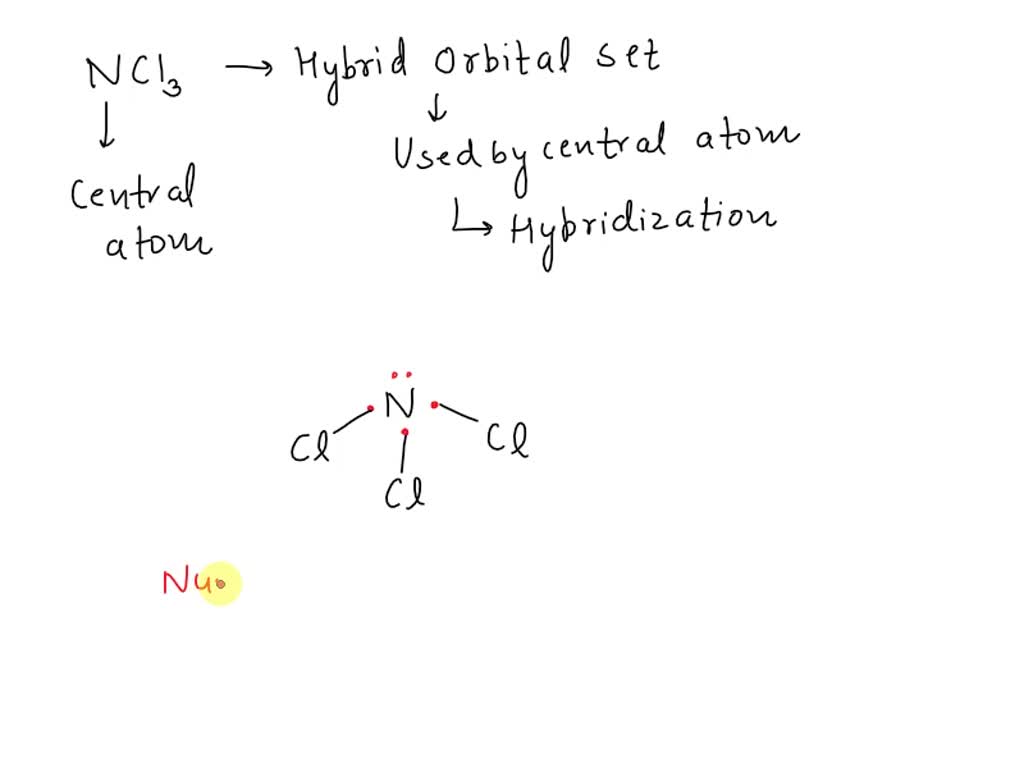 NCl3 → Hybrid Orbital set
↓ ↓
Central Used by central atom
atom ↳ Hybridization
N
Cl Cl
Cl
Nu